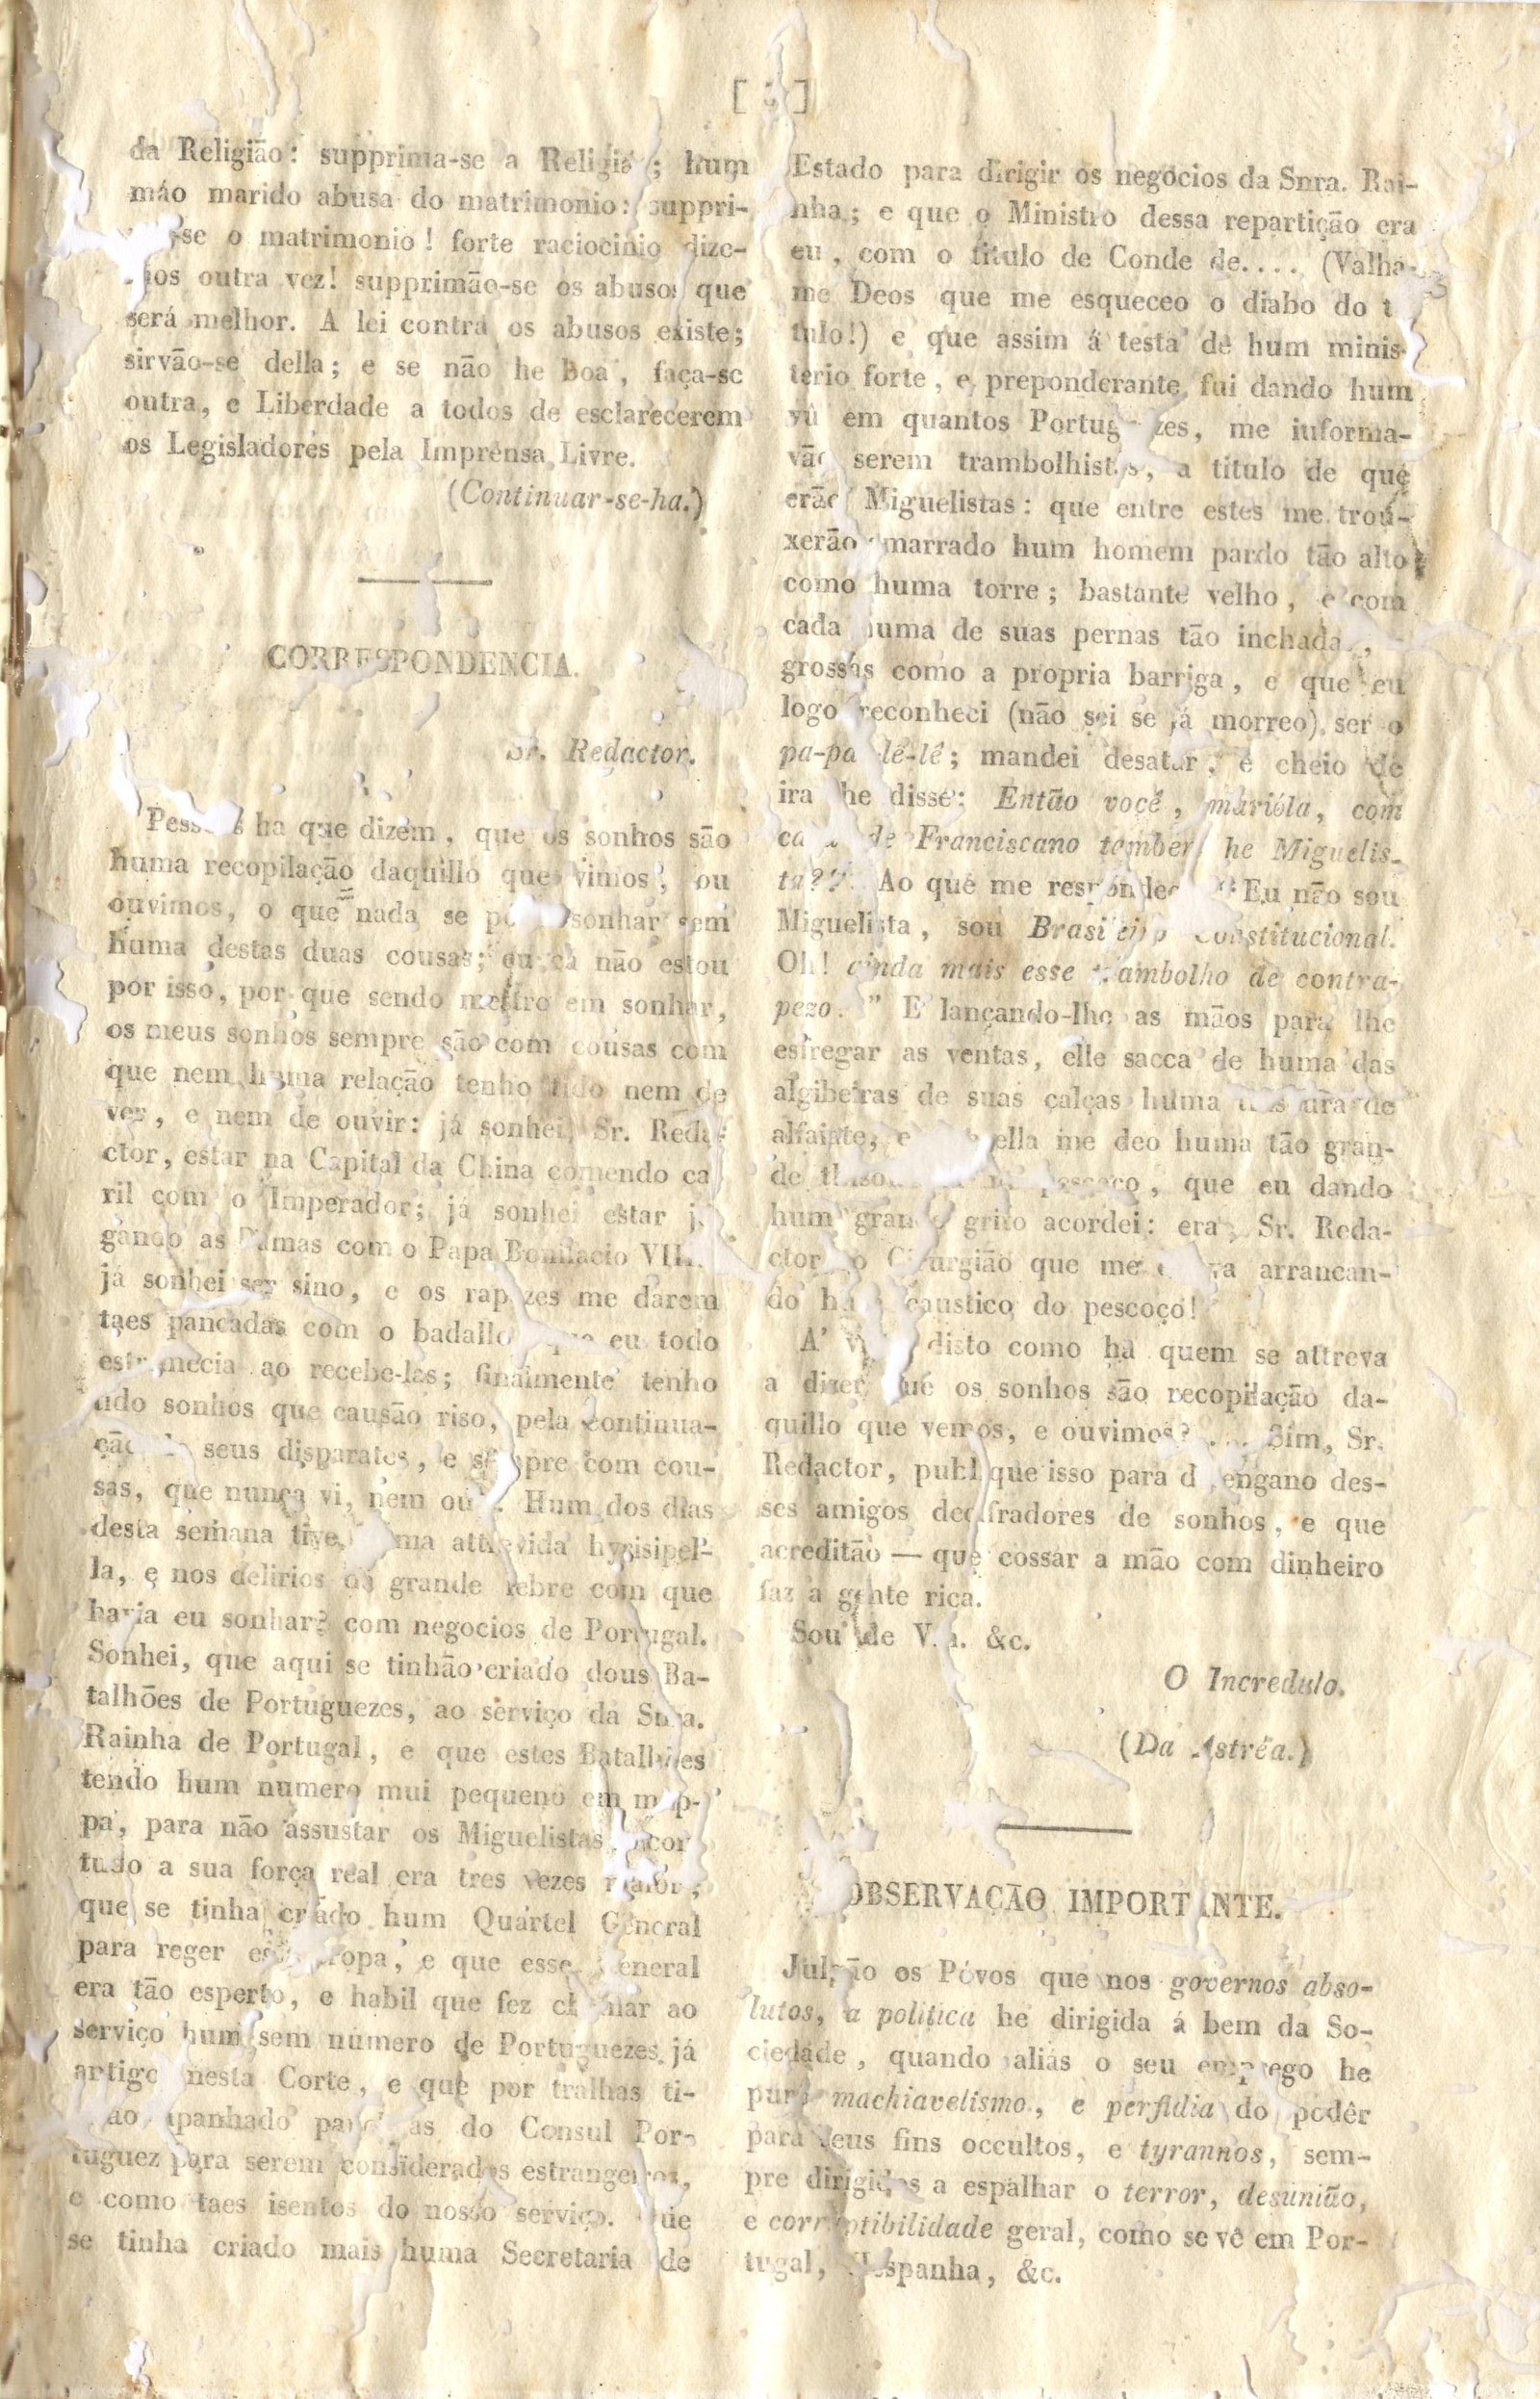 da Religião: supprima-se a ; hum
máo marido abusa do matrimonio: suppri-
-se o matrimonio! forte raciocinio dize-
outra vez! supprimão-se os abusos que
será melhor. A lei contra os abusos existe;
sirvão-se della; e se não he Boa, faça-se
outra, e Liberdade a todos de esclarecerem
os Legisladores pela Imprensa Livre.
(Continuar-se-ha.)
CORRESPONDENCIA.
Sr. Redactor.
ha que dizem, que os sonhos são
huma recopilação daquillo que vimos, ou
ouvimos, o que nada se sonhar sem
huma destas duas cousas; não estou
por isso, por que sendo em sonhar,
os meus sonhos sempre são com cousas com
que nem huma relação tenho tido nem de
ver, e nem de ouvir: já sonhei, Sr. Reda-
ctor, estar na Capital da China comendo ca
ril com o Imperador; já sonhei estar
as Damas com o Papa Bonifacio
já sonhei ser sino, e os rapazes me darem
taes pancadas com o eu todo
estremecia ao recebe-las; finalmente tenho
tido sonhos que causão riso, pela continua-
seus disparates, e sempre com cou-
sas, que nunca vi, nem Hum dos dias
desta semana
la, e nos delirios da grande febre com que
havia eu sonhar? com negocios de Portugal.
Sonhei, que aqui se tinhão criado dous Ba-
talhões de Portuguezes, ao serviço da Snra.
Rainha de Portugal, e que estes Batalhões
tendo hum numero mui pequeno em map-
pa, para não assustar os Miguelistas,
tudo a sua força real era tres vezes maior;
que se tinha criado hum Quartel General
para reger , e que esse General
era tão esperto, e habil que fez chamar ao
serviço hum sem numero de Portuguezes já
nesta Corte, e que por tralhas ti-
do Consul Por-
tuguez para serem considerados estrangeiros,
e como taes isentos do nosso serviço. Que
se tinha criado mais huma Secretaria de
Estado para dirigir os negocios da Snra. Rai-
nha; e que o Ministro dessa repartição era
eu, com o titulo de Conde de.... (Valha-
me Deos que me esqueceo o diabo do
tulo!) e que assim á testa de hum minis-
terio forte, e preponderante, fui dando hum
vû em quantos Portuguezes, me informa-
vão serem trambolhistas, a titulo de que
erão Miguelistas: que entre estes me trou-
xerão amarrado hum homem pardo tão alto
como huma torre; bastante velho, e com
cada huma de suas pernas tão inchada,
grossas como a propria barriga, e que eu
logo reconheci (não sei se já morreo) ser o
pa-pa lê-lê; mandei desatar, e cheio de
ira lhe disse: Então você, mariola, com
de Franciscano tambem he Miguelis-
ta?? Ao que me respondeo "Eu não sou
Miguelista, sou Brasileiro Constitucional.
Oh! ainda mais esse trambolho de contra-
pezo." E lançando-lhe as mãos para lhe
esfregar as ventas, elle sacca de huma das
algibeiras de suas calças huma de
alfaiate, e ella me deo huma tão gran-
de pescoço, que eu dando
hum grande grito acordei: era, Sr. Reda-
ctor, o Cirurgião que me arrancan-
do caustico do pescoço!
A' disto como ha quem se attreva
a dizer que os sonhos são recopilação da-
quillo que vemos, e ouvimos? .... Sim, Sr.
Redactor, publique isso para desengano des-
ses amigos decifradores de sonhos, e que
acreditão — que cossar a mão com dinheiro
faz a gente rica.
Sou de V.m. &c.
O Incredulo.
(Da Astréa.)
OBSERVAÇÃO IMPORTANTE.
Julgão os Póvos que nos governos abso-
lutos, a politica he dirigida á bem da So-
ciedade, quando aliás o seu emprego he
puro machiavelismo, e perfidia do podêr
para seus fins occultos, e tyrannos, sem-
pre dirigidos a espalhar o terror, desunião,
e corruptibilidade geral, como se vê em Por-
tugal, Hespanha, &c.